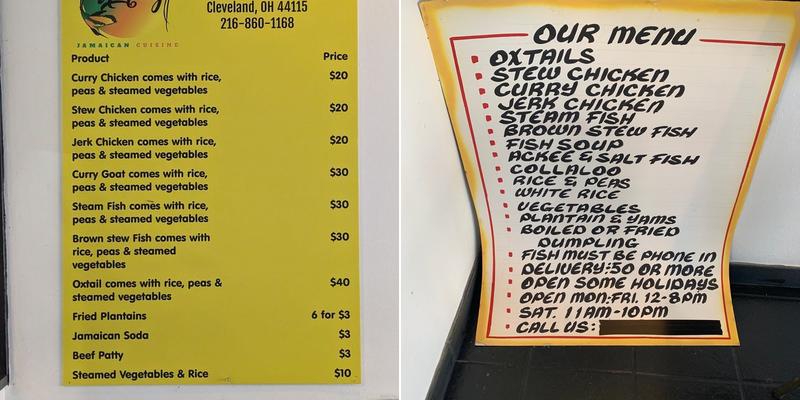 Cleveland, OH 44115
216-860-1168
JAMAICAN CUISINE
Product Price
Curry Chicken comes with rice, $20
peas & steamed vegetables
Stew Chicken comes with rice, $20
peas & steamed vegetables
Jerk Chicken comes with rice, $20
peas & steamed vegetables
Curry Goat comes with rice, $30
peas & steamed vegetables
Steam Fish comes with rice, $30
peas & steamed vegetables
Brown stew Fish comes with $30
rice, peas & steamed
vegetables
Oxtail comes with rice, peas & $40
steamed vegetables
Fried Plantains 6 for $3
Jamaican Soda $3
Beef Patty $3
Steamed Vegetables & Rice $10
OUR MENU
OXTAILS
STEW CHICKEN
CURRY CHICKEN
JERK CHICKEN
STEAM FISH
BROWN STEW FISH
FISH SOUP
ACKEE & SALT FISH
COLLALOO
RICE & PEAS
WHITE RICE
VEGETABLES
PLANTAIN & YAMS
BOILED OR FRIED
DUMPLING
FISH MUST BE PHONE IN
DELIVERY:50 OR MORE
OPEN SOME HOLIDAYS
OPEN MON:FRI. 12-8PM
SAT. 11AM-10PM
CALL US: